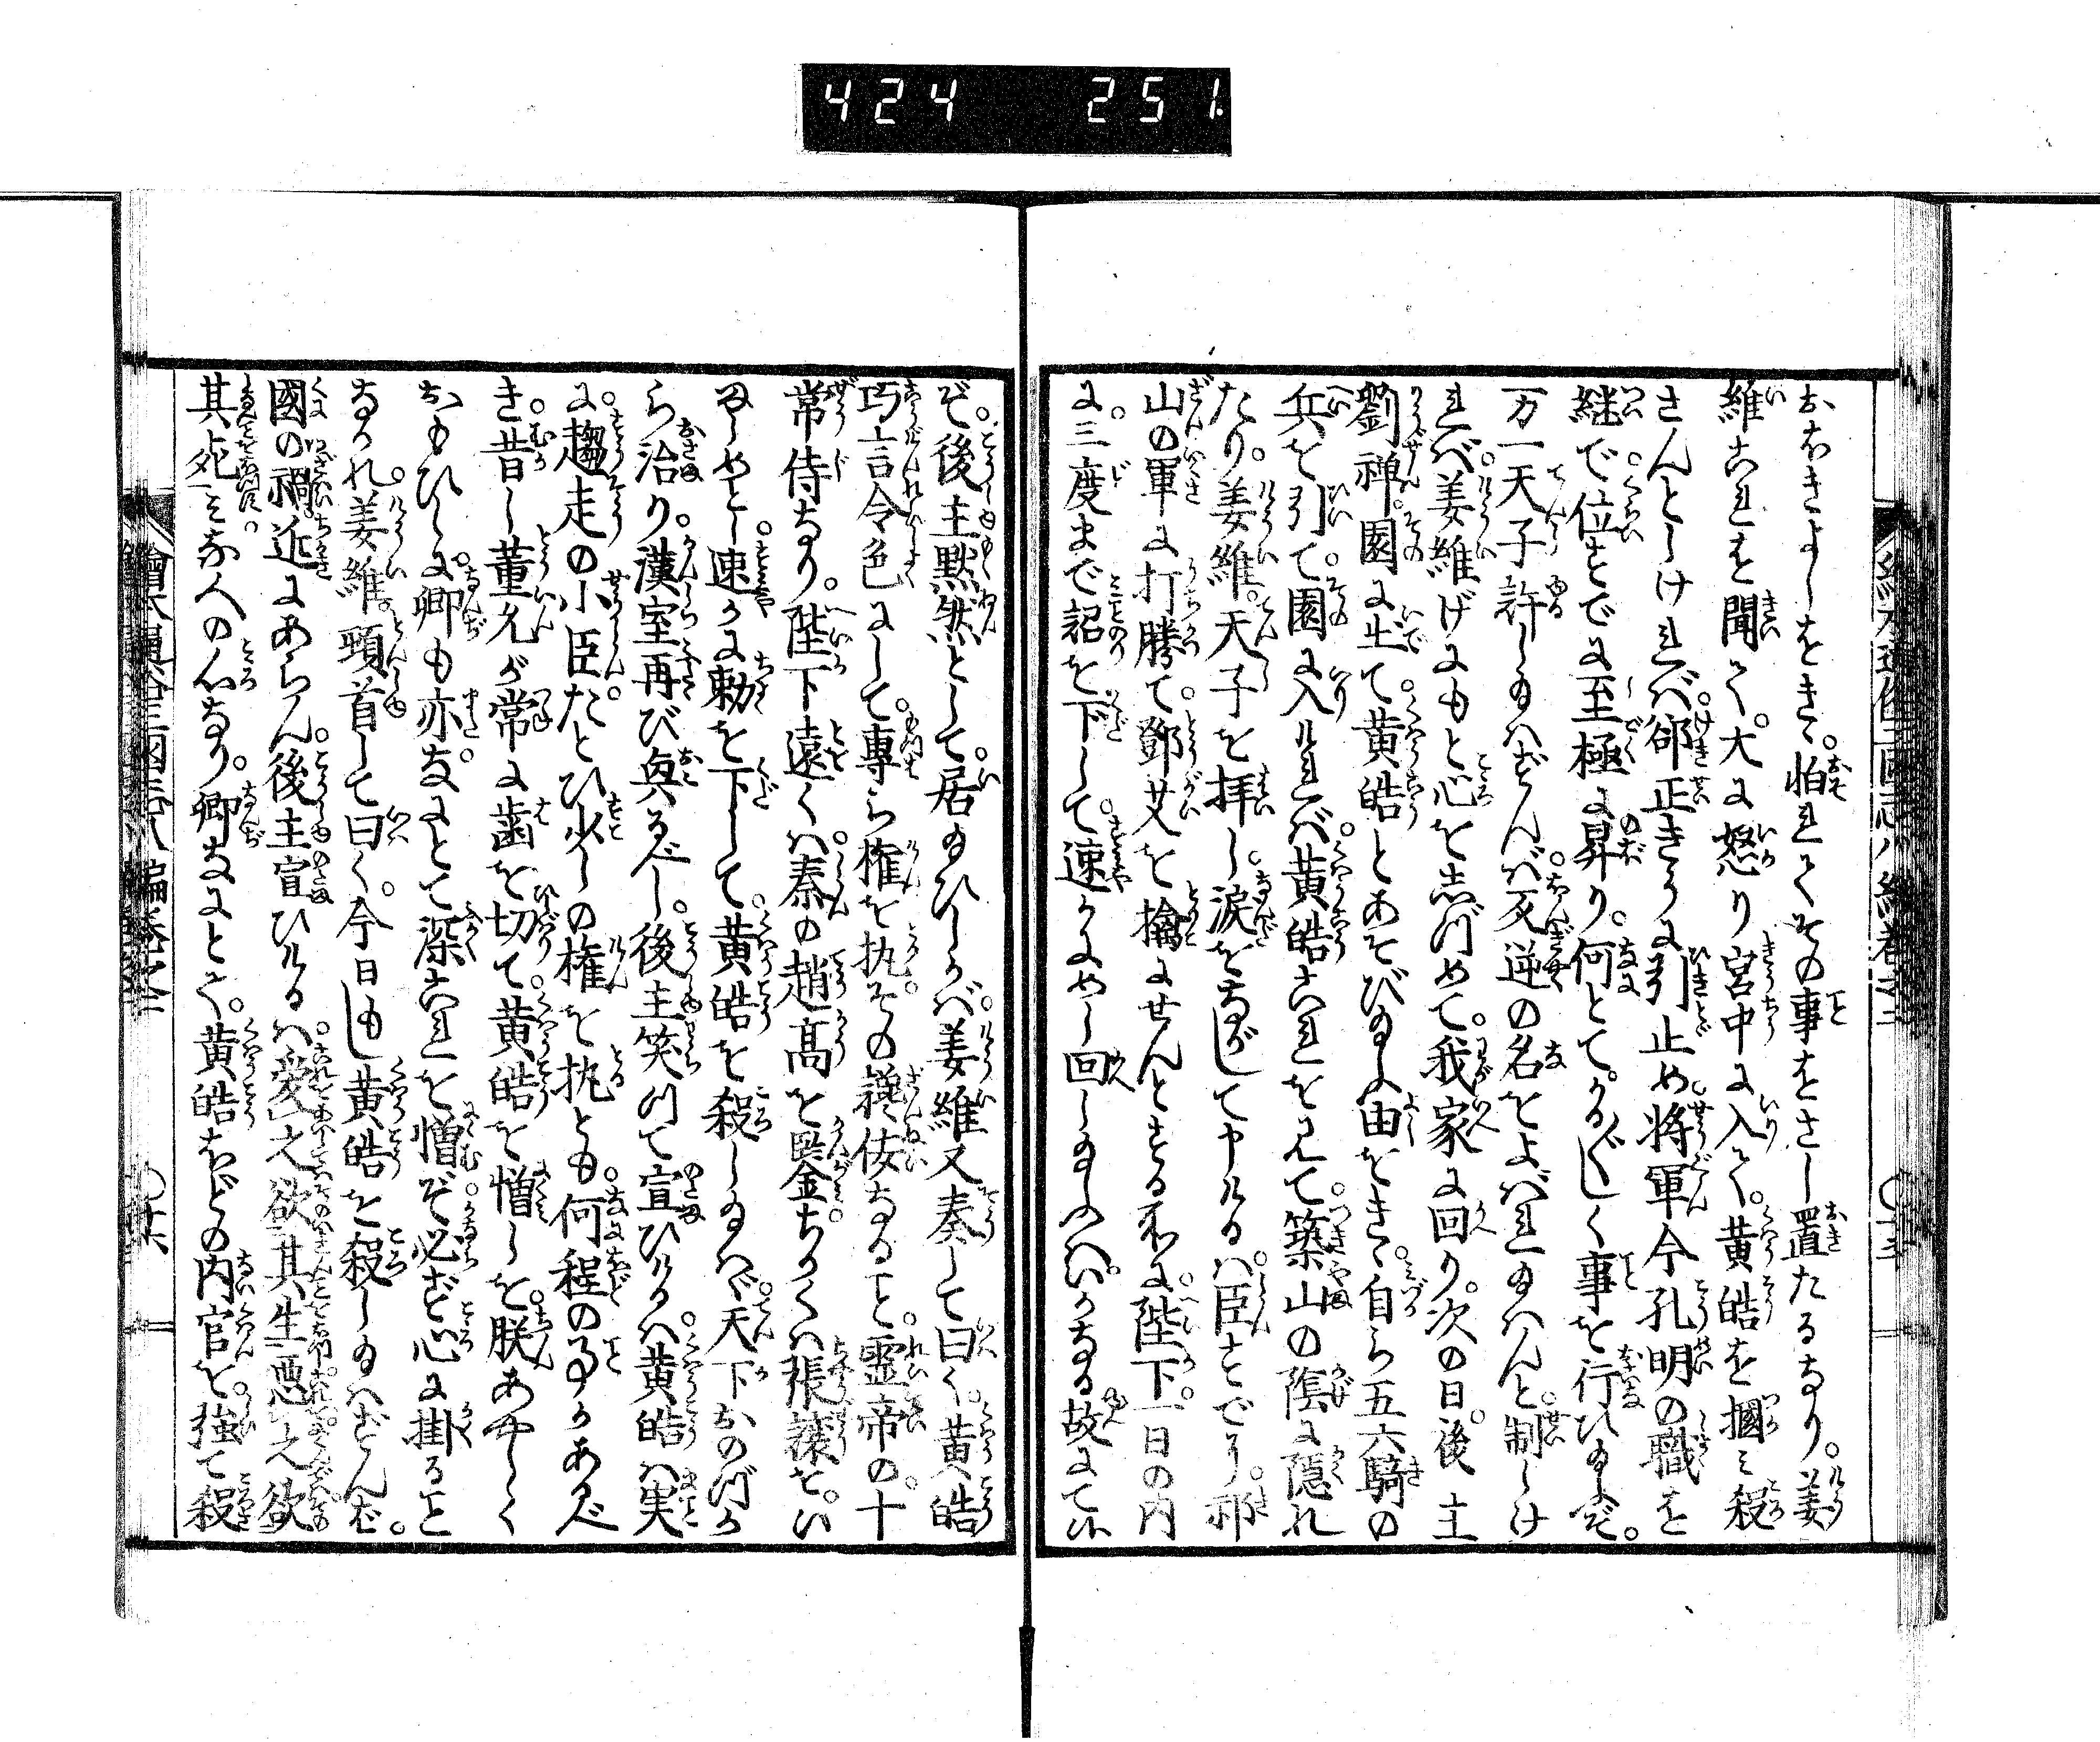 424 251
なきよしをきゝ。怕れてその事をさし置たるなり。姜
維これを聞て。大に怒り宮中に入て。黄皓を摑み殺
さんとしければ。郤正きうに引止め。将軍今孔明の職を
継で。位すでに至極に昇り。何とて。かるがるしく事を行ひ給ふぞ。
万一天子許し給はずんば。反逆の名をよばれ給はんと。制しけ
れば。姜維げにもと心をしづめて。我家に回り。次の日。後主
劉禅。園に出て。黄皓とあそび給ふ由をきゝ。自ら五六騎の
兵を引て。園に入ければ。黄皓これを見て。築山の陰に隠れ
たり。姜維。天子を拝し。涙をながして申けるは。臣すでに。祁
山の軍に打勝て。鄧艾を擒にせんとする所に。陛下。一日の内
に。三度まで詔を下して。速かにめし回し給ふは。いかなる故にてい
ぞ。後主黙然として。居給ひしかば。姜維又奏して曰く。黄皓
巧言令色にして。專ら権を执。その讒佞なること。霊帝の。十
常侍なり。陛下遠くは。秦の趙高を鑒。ちかくは張譲を。い
ましめとし。速かに勅を下して。黄皓を殺し給はゞ。天下おのづか
ら治り。漢室再び興るべし。後主笑つて宣ひけるは。黄皓は実
に。趨走の小臣。たとひ少しの権を执とも。何程の事かあるべ
き。昔し董允が常に歯を切て。黄皓を憎しを。朕あやしく
おもひしに。卿も亦。なにとて深これを憎ぞ。必ず心に掛ること
なかれ。姜維。頭首して曰く。今日もし黄皓を殺し給はずんば。
國の禍。近にあらん。後主宣ひけるは。愛之欲其生悪之欲
其死とみな人の心なり。卿なにとて。黄皓ほどの内官を。強て殺